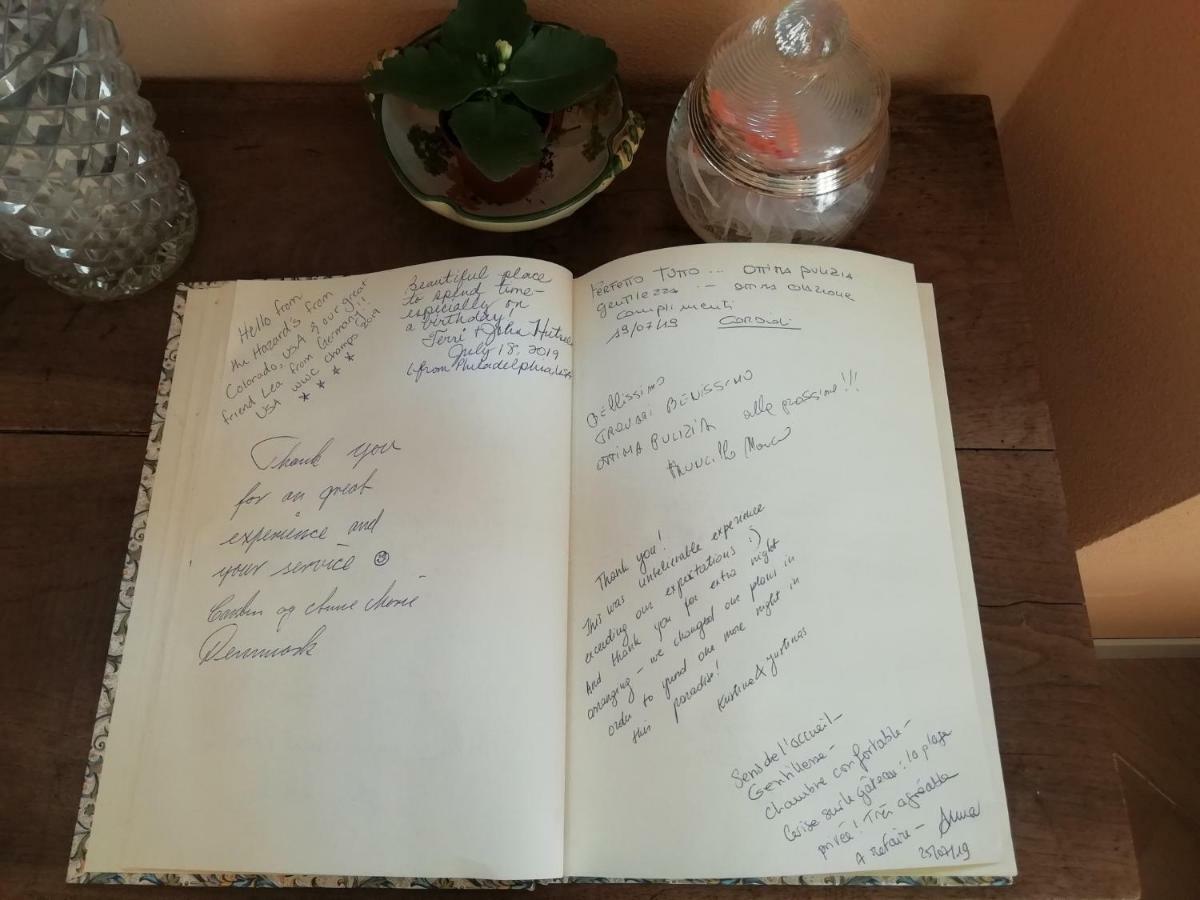 Hello from
the Hazard's from
Colorado, USA & our great
friend Lea from Germany!!
USA WWC champs 2019
Beautiful place
to spend time-
especially on
a birthday!
Terri + John
July 18, 2019
from Philadelphia
Thank you
for an great
experience and
your service
og Anne Marie
Denmark
PERFETTO TUTTO ... OTTIMA PULIZIA
gentilezza ... OTTIMA COLAZIONE
complimenti
19/07/19
Bellissimo
TROVATI BENISSIMO
OTTIMA PULIZIA alla prossima!!!
Marco
Thank you!
This was unbelievable experience
exceeding our expectations :)
And thank you for extra night
arranging - we changed our plans in
order to spend one more night in
this paradise!
& Justinas
Sens de l'accueil-
Gentillesse-
chambre confortable-
Cerise sur le gâteau : la plage
privée! Très agréable
A refaire- Anna
25/07/19